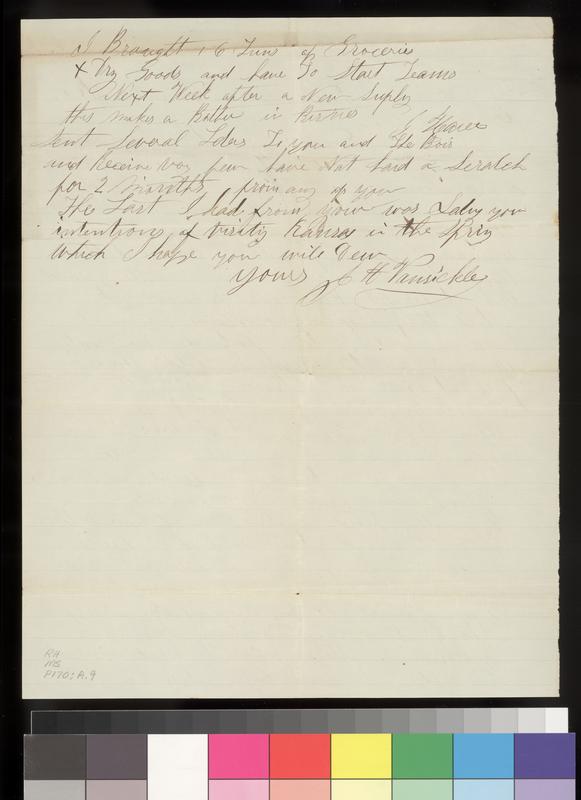 I Brought 16 Tuns of Groceries
& Dry Goods and have To Start Teams
Next Week after a New Suply
this makes a Bother in Bisnes I Have
Sent Several Leters To you and The Bois
and Receive very few have Not had a Scratch
for 2 Months from any of you
The Last I had from you was Lady you
intentions of visity Kansas in the Spring
Which I hope you will Dew
Yours J H Vansickle
RH
MS
P170:A.9